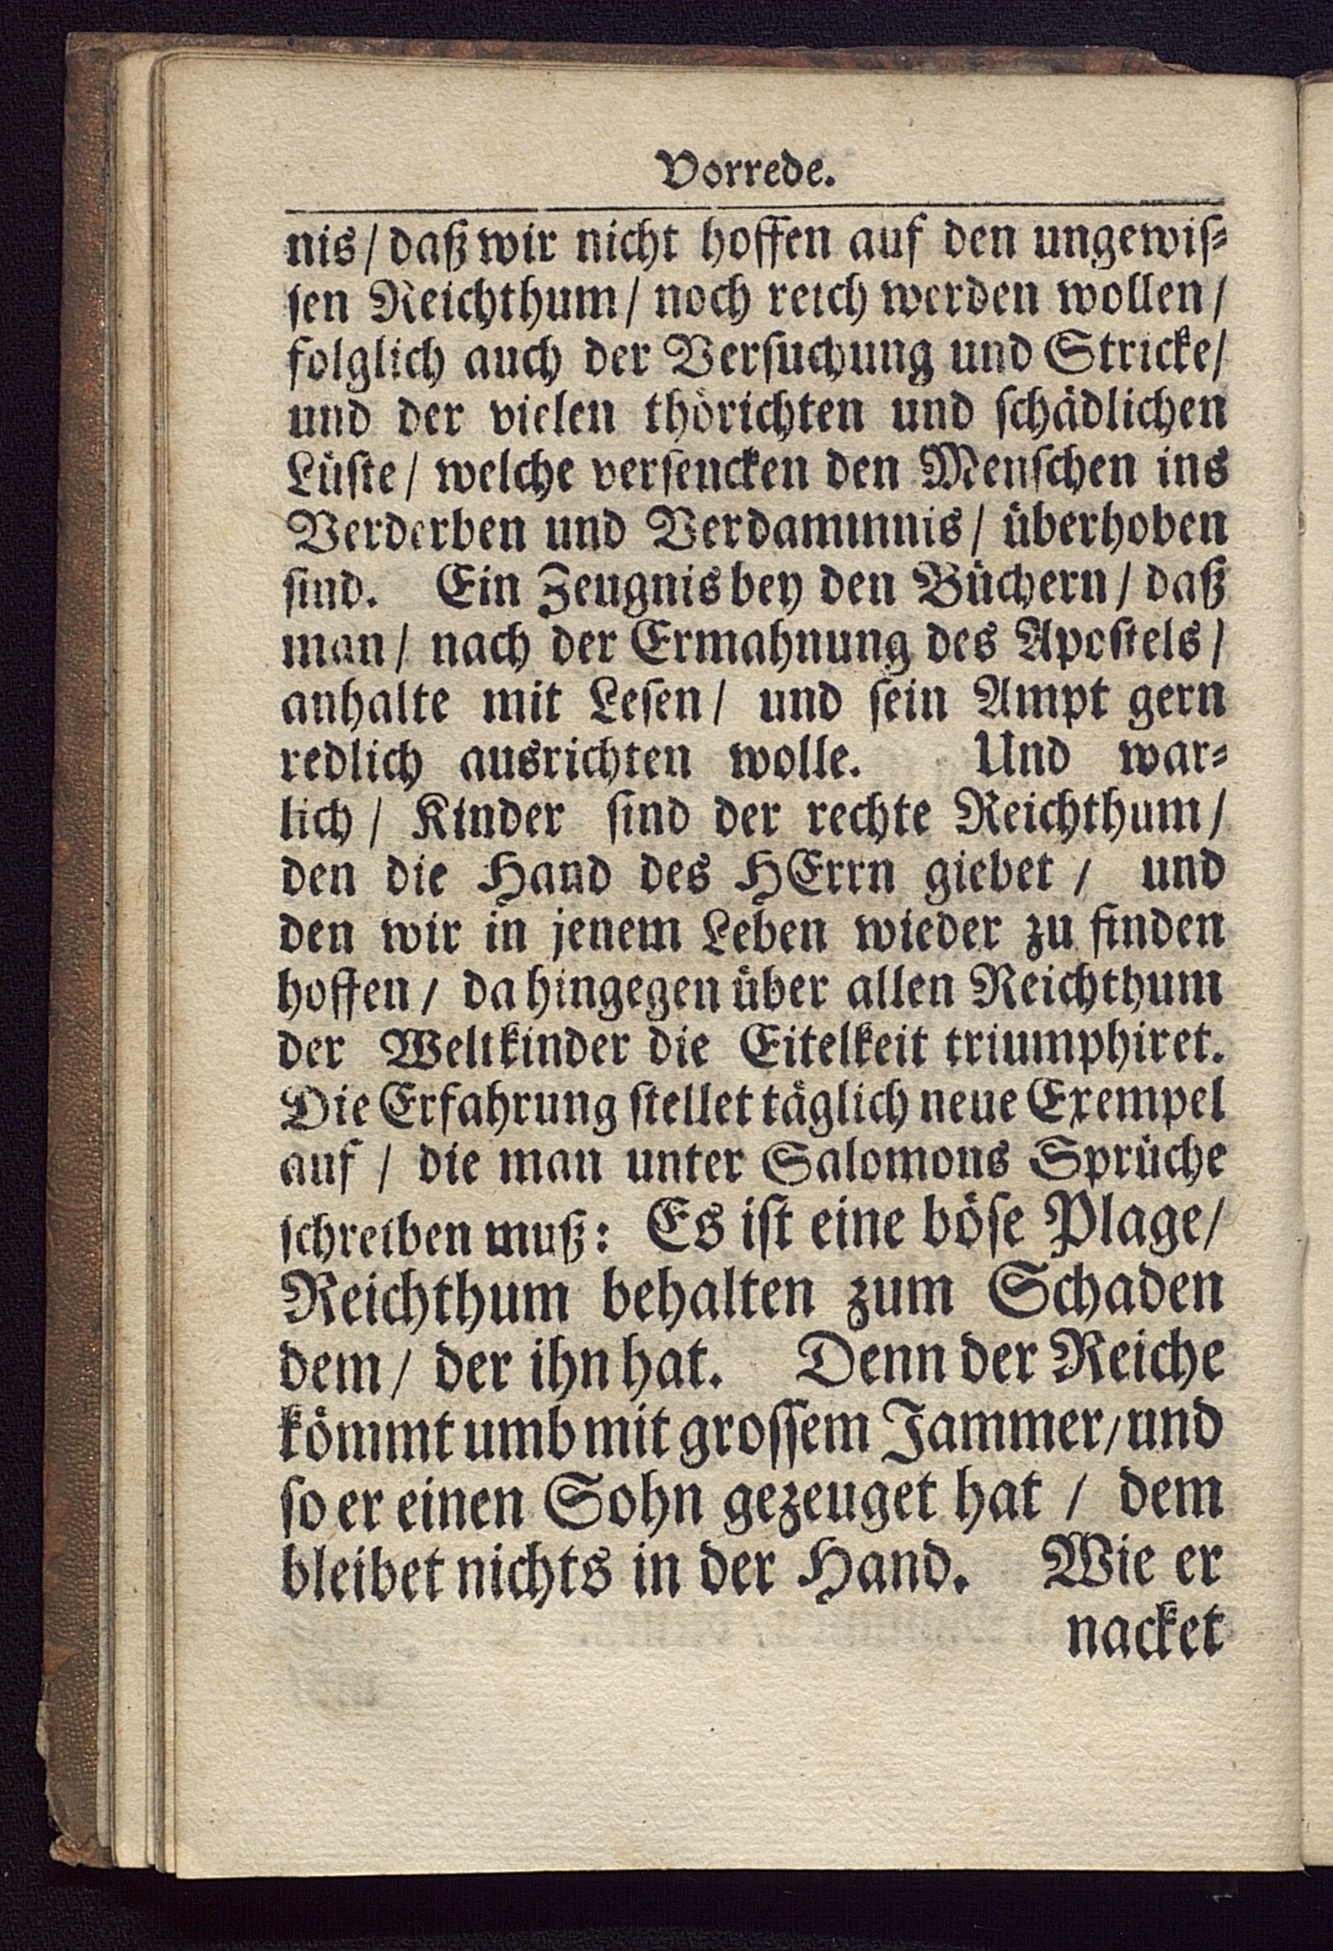 Vorrede.
nis/ daß wir nicht hoffen auf den ungewiſ-
ſen Reichthum/ noch reich werden wollen/
folglich auch der Verſuchung und Stricke/
und der vielen thörichten und ſchädlichen
Lüſte/ welche verſencken den Menſchen ins
Verderben und Verdammnis/ überhoben
ſind. Ein Zeugnis bey den Büchern/ daß
man/ nach der Ermahnung des Apoſtels/
anhalte mit Leſen/ und ſein Ampt gern
redlich ausrichten wolle. Und war-
lich/ Kinder ſind der rechte Reichthum/
den die Hand des HErrn giebet/ und
den wir in jenem Leben wieder zu finden
hoffen/ da hingegen über allen Reichthum
der Weltkinder die Eitelkeit triumphiret.
Die Erfahrung ſtellet täglich neue Exempel
auf/ die man unter Salomons Sprüche
ſchreiben muß: Es iſt eine böſe Plage/
Reichthum behalten zum Schaden
dem/ der ihn hat. Denn der Reiche
kömmt umb mit groſſem Jammer/ und
ſo er einen Sohn gezeuget hat/ dem
bleibet nichts in der Hand. Wie er
nacket